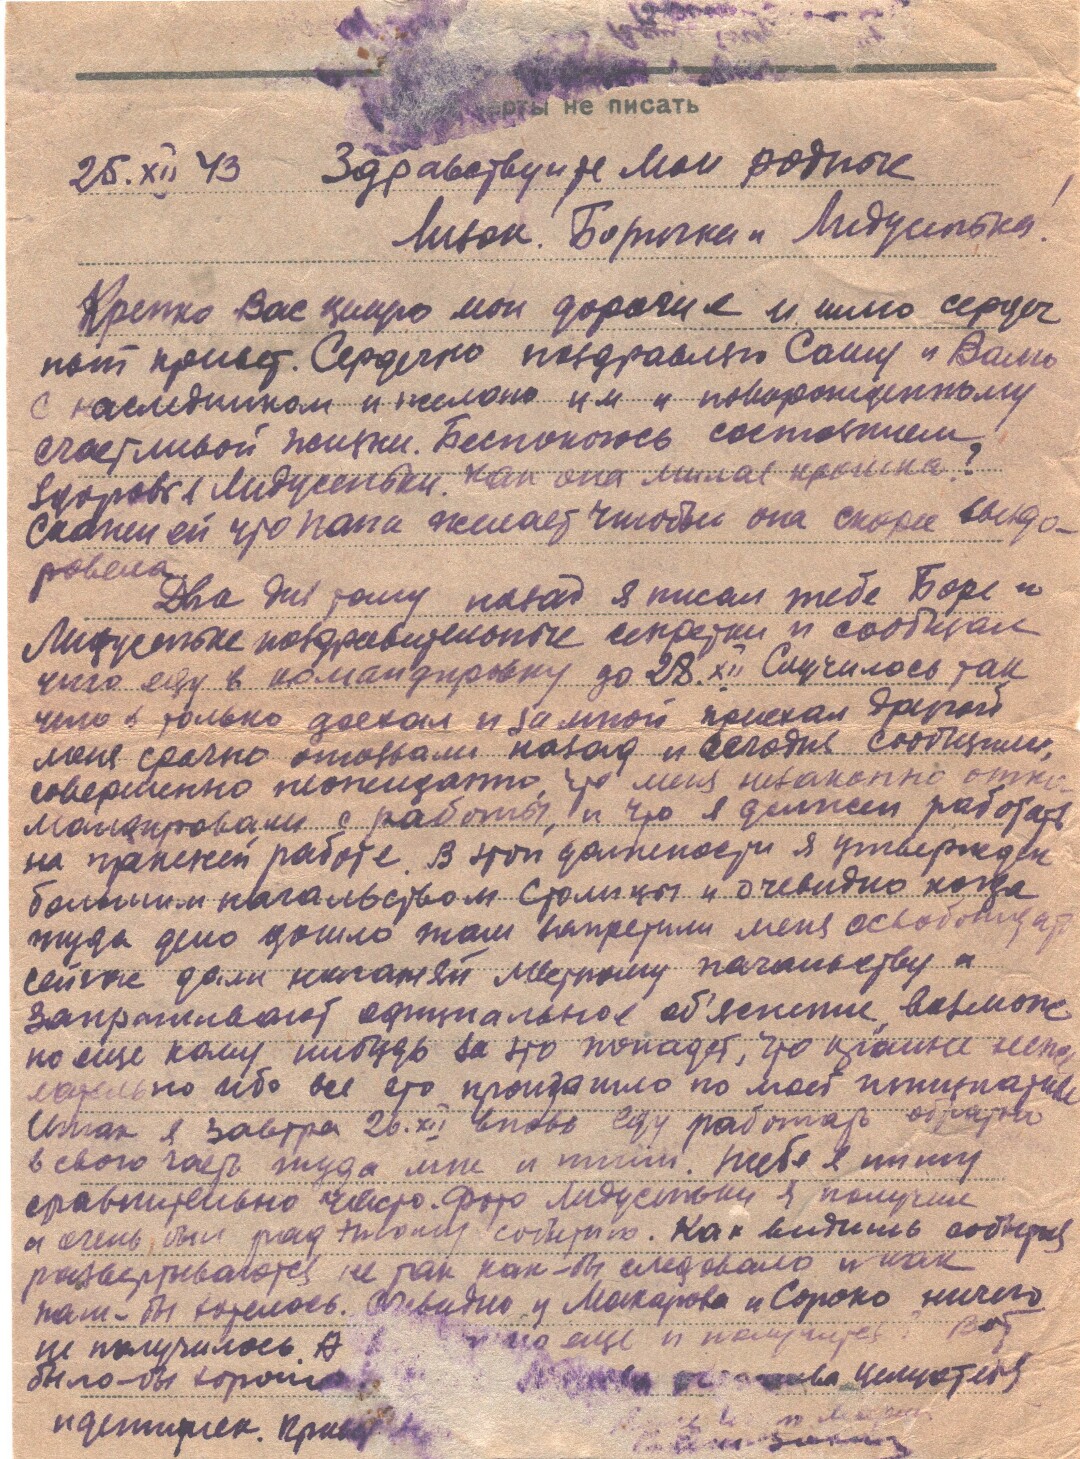 черты не писать
25.XII 43 Здравствуйте мои родные
Лизок. Боричка и Лидусенька!
Крепко Вас целую мои дорогие и шлю сердеч
ный привет. Сердечно поздравляю Сашу и Валю
с наследником и желаю им и новорожденному
счастливой жизни. Беспокоюсь состоянием
здоровья Лидусеньки. Как она милая крошка?
Скажи ей что папа желает чтобы она скорее выздо-
ровела.
Два дня тому назад я писал тебе Боре и
Лидусеньке поздравительные секретки и сообщал
что еду в командировку до 28.XII Случилось так
что я только доехал и за мной приехал другой
меня срочно отозвали назад и сегодня сообщили,
совершенно неожиданно, что меня незаконно отко-
мандировали с работы, и что я должен работать
на прежней работе. В этой должности я утвержден
большим начальством столицы и очевидно когда
туда дело дошло там запретили меня освобождать
сейчас дали нагоняй местному начальству и
запрашивают официальное объяснение, возмож
но еще кому нибудь за это попадет, что крайне неже
лательно ибо все это произошло по моей инициативе
Итак я завтра 26.XII вновь еду работать обратно
в свою часть туда мне и пиши. Тебе я пишу
сравнительно часто. Фото Лидусеньки я получил
и очень был рад этому событию. Как видишь события
развертываются не так как-бы следовало и как
нам-бы хотелось. Очевидно у Макарова и Сороко ничего
не получилось. А еще и получится? Вот
было-бы хорошо
и детишек. Привет